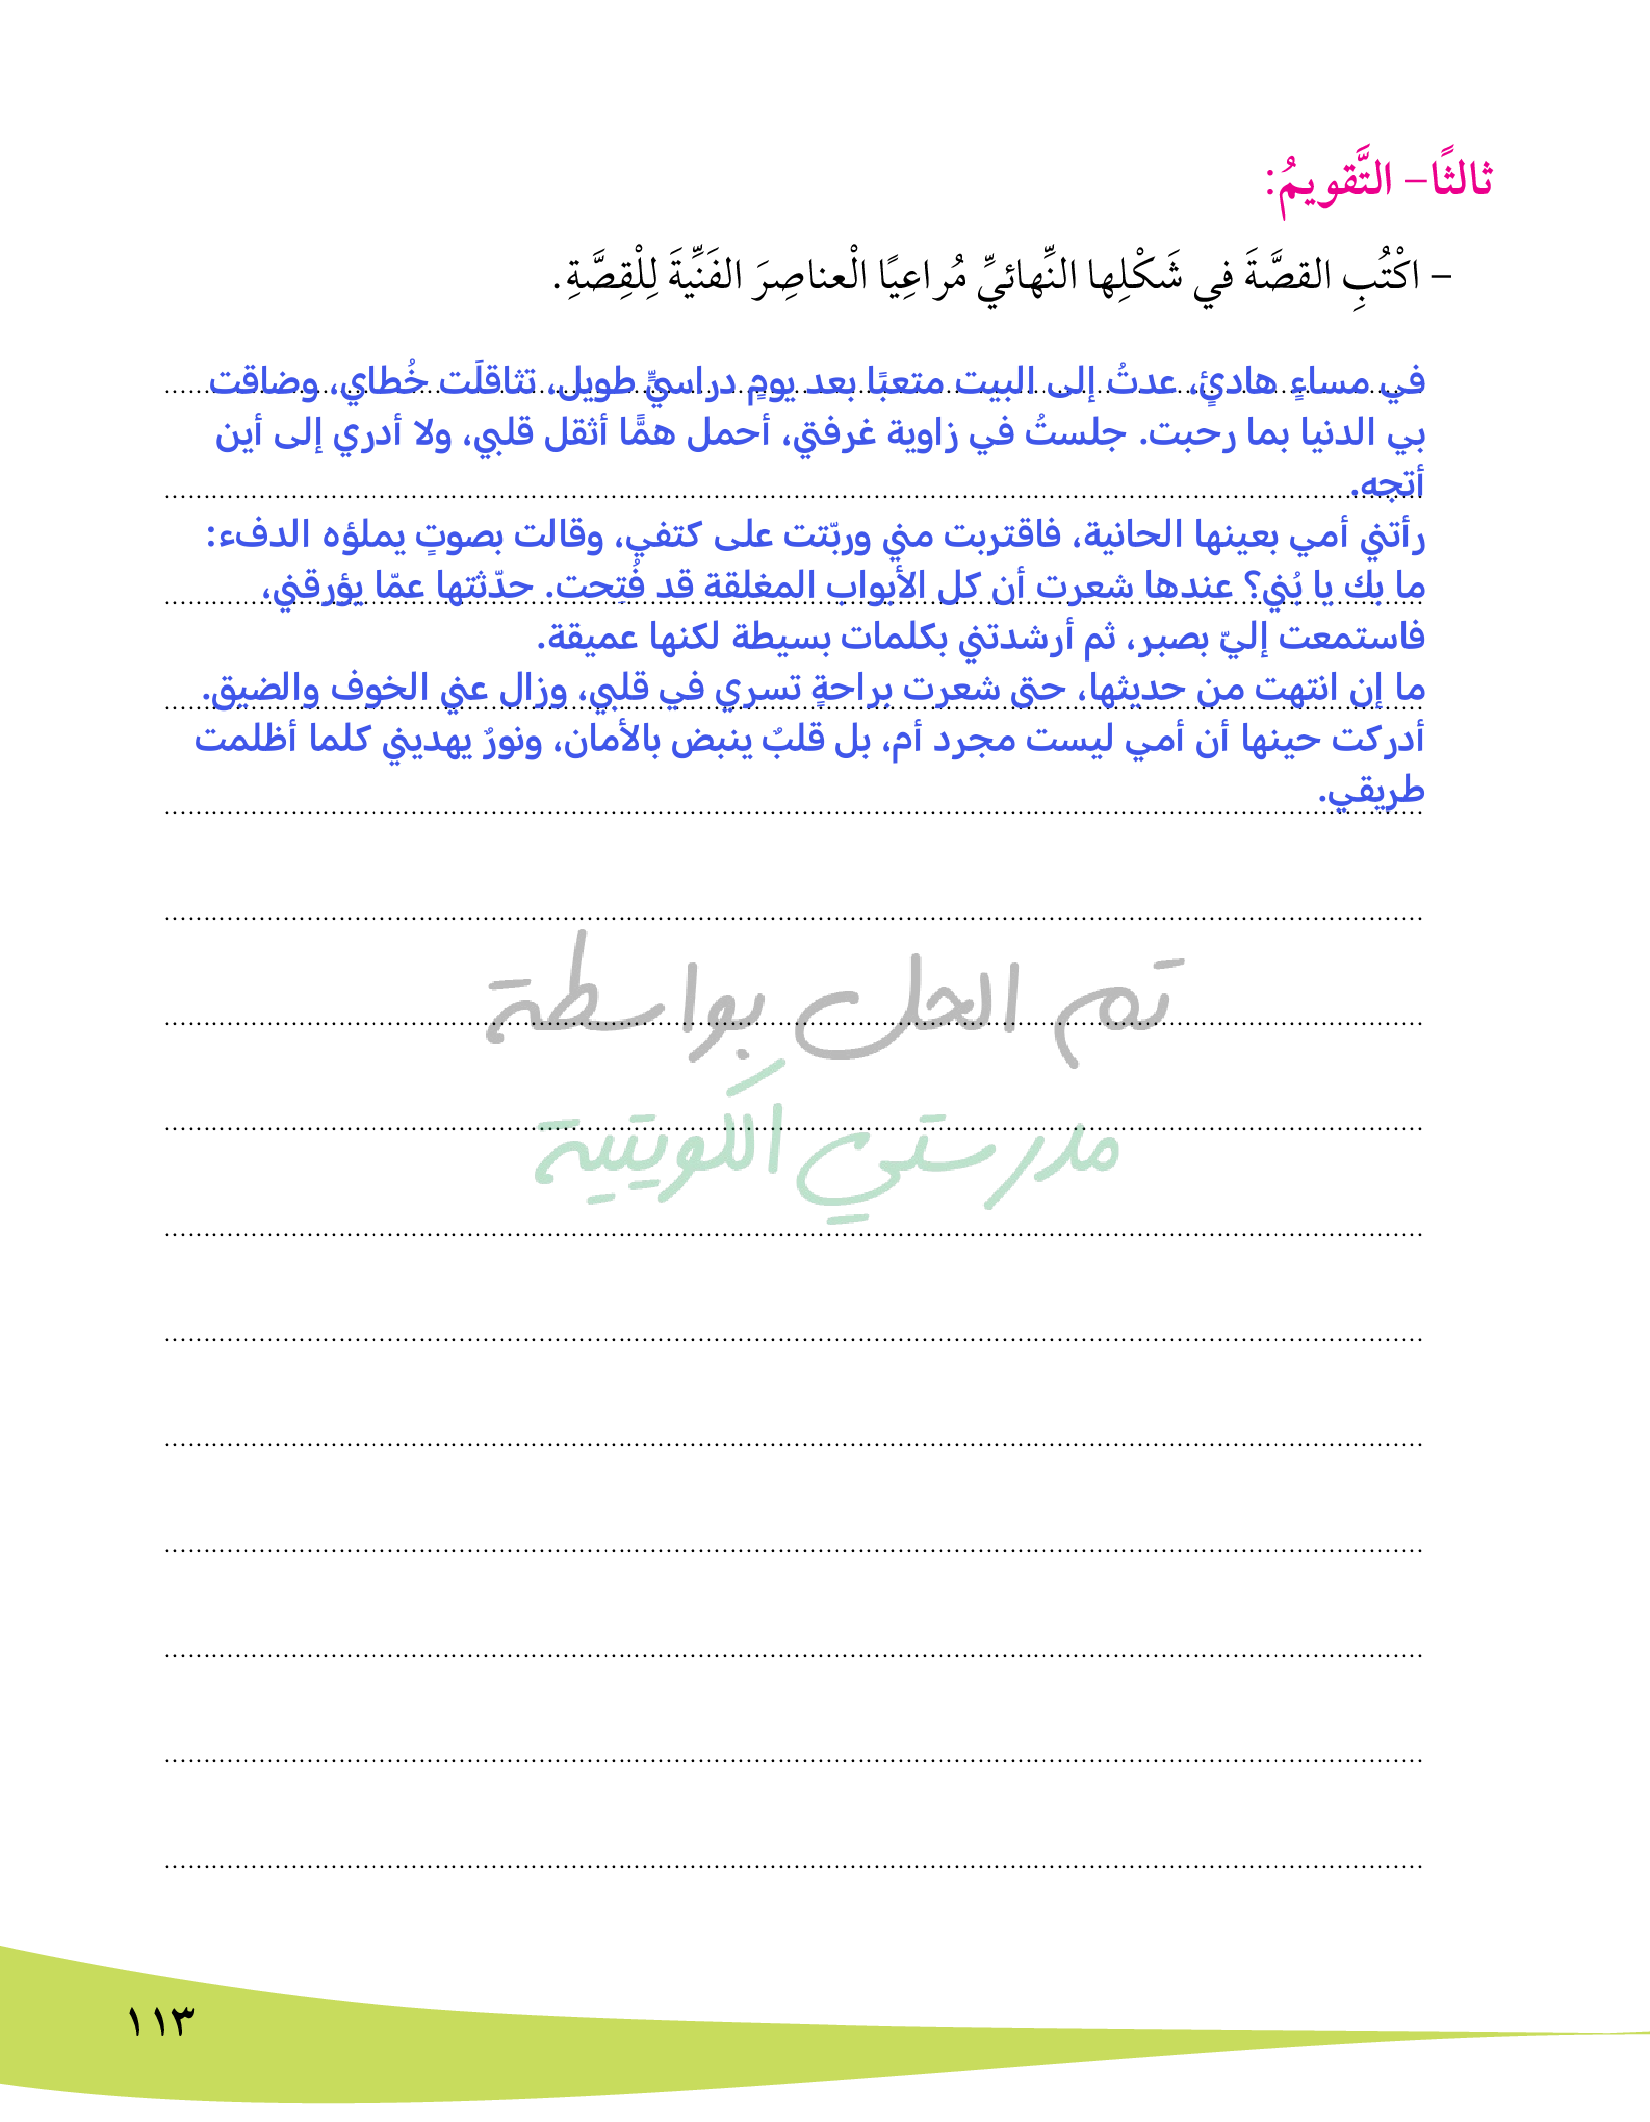 ثالثًا- التَّقويمُ:
- اكْتُبِ القصَّةَ في شَكْلِها النِّهائيِّ مُراعِيًا الْعناصِرَ الفَنِّيَّةَ لِلْقِصَّةِ.
في مساءٍ هادئٍ، عدتُ إلى البيت متعبًا بعد يومٍ دراسيٍّ طويل، تثاقلَت خُطاي، وضاقت
بي الدنيا بما رحبت. جلستُ في زاوية غرفتي، أحمل همًّا أثقل قلبي، ولا أدري إلى أين
أتجه.
رأتني أمي بعينها الحانية، فاقتربت مني وربّتت على كتفي، وقالت بصوتٍ يملؤه الدفء:
ما بك يا بُني؟ عندها شعرت أن كل الأبواب المغلقة قد فُتِحت. حدّثتها عمّا يؤرقني،
فاستمعت إليّ بصبر، ثم أرشدتني بكلمات بسيطة لكنها عميقة.
ما إن انتهت من حديثها، حتى شعرت براحةٍ تسري في قلبي، وزال عني الخوف والضيق.
أدركت حينها أن أمي ليست مجرد أم، بل قلبٌ ينبض بالأمان، ونورٌ يهديني كلما أظلمت
طريقي.
تم الحل بواسطة
مدرستي الكويتية
١١٣